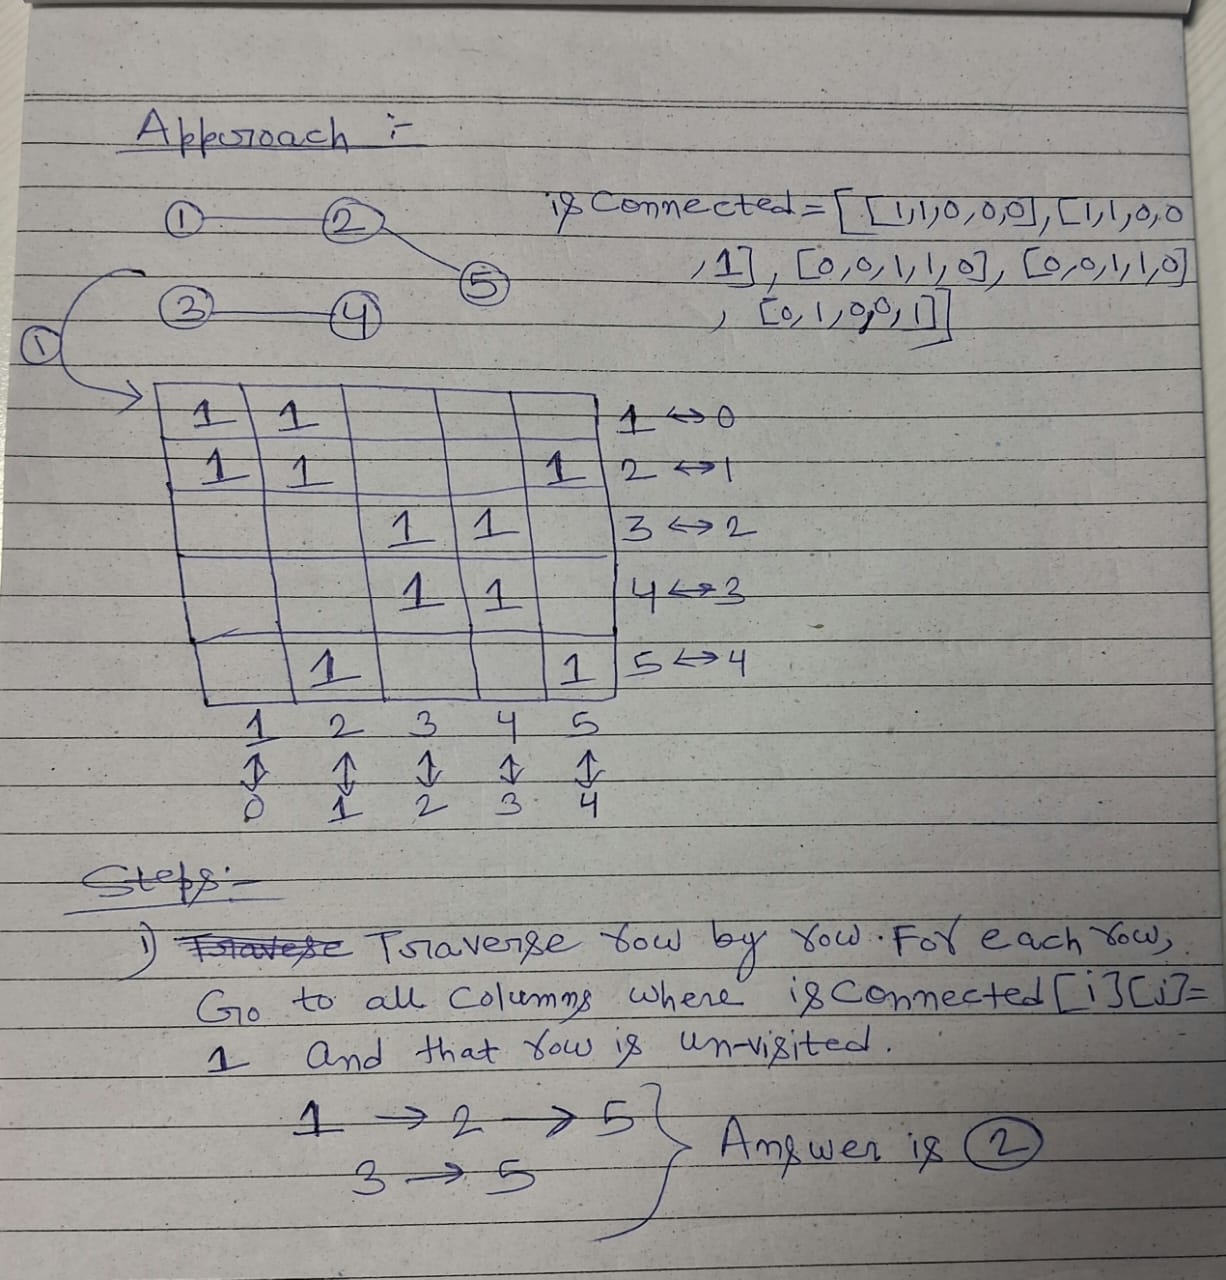 Approach :-
1 2 isConnected = [ [1,1,0,0,0], [1,1,0,0
5 ,1], [0,0,1,1,0], [0,0,1,1,0]
3 4 , [0,1,0,0,1]]
1
1 1 1 ↔ 0
1 1 1 2 ↔ 1
1 1 3 ↔ 2
1 1 4 ↔ 3
1 1 5 ↔ 4
1 2 3 4 5
↕ ↕ ↕ ↕ ↕
0 1 2 3 4
Steps:-
1) Travese Traverse row by row. For each row,
Go to all columns where isConnected[i][j]=
1 and that row is un-visited.
1 → 2 → 5
3 → 5 } Answer is 2